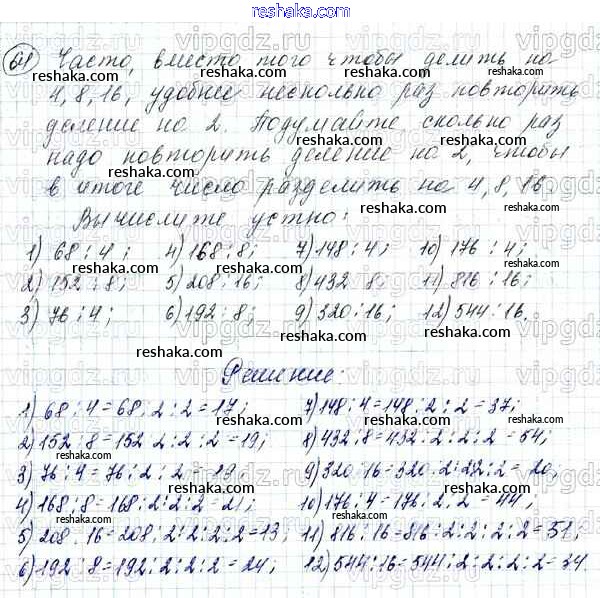 reshaka.com
641) Часто, вместо того чтобы делить на
4, 8, 16, удобнее несколько раз повторить
деление на 2. Подумайте, сколько раз
надо повторить деление на 2, чтобы
в итоге число разделить на 4, 8, 16.
Вычислите устно:
1) 68 : 4; 4) 168 : 8; 7) 148 : 4; 10) 176 : 4;
2) 152 : 8; 5) 208 : 16; 8) 432 : 8; 11) 816 : 16;
3) 76 : 4; 6) 192 : 8; 9) 320 : 16; 12) 544 : 16.
Решение:
1) 68 : 4 = 68 : 2 : 2 = 17; 7) 148 : 4 = 148 : 2 : 2 = 37;
2) 152 : 8 = 152 : 2 : 2 : 2 = 19; 8) 432 : 8 = 432 : 2 : 2 : 2 = 54;
3) 76 : 4 = 76 : 2 : 2 = 19; 9) 320 : 16 = 320 : 2 : 2 : 2 : 2 = 20;
4) 168 : 8 = 168 : 2 : 2 : 2 = 21; 10) 176 : 4 = 176 : 2 : 2 = 44;
5) 208 : 16 = 208 : 2 : 2 : 2 : 2 = 13; 11) 816 : 16 = 816 : 2 : 2 : 2 : 2 = 51;
6) 192 : 8 = 192 : 2 : 2 : 2 = 24; 12) 544 : 16 = 544 : 2 : 2 : 2 : 2 = 34.